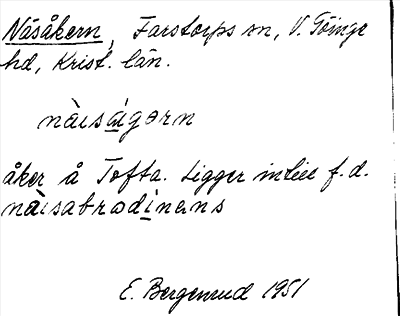 Näsåkern, Farstorps sn, V. Göinge
hd, Krist. län.
nàɩsái̯gərn
åker å Tofta. Ligger intill f.d.
nàɩsabrωdinəns
E. Bergenrud 1951